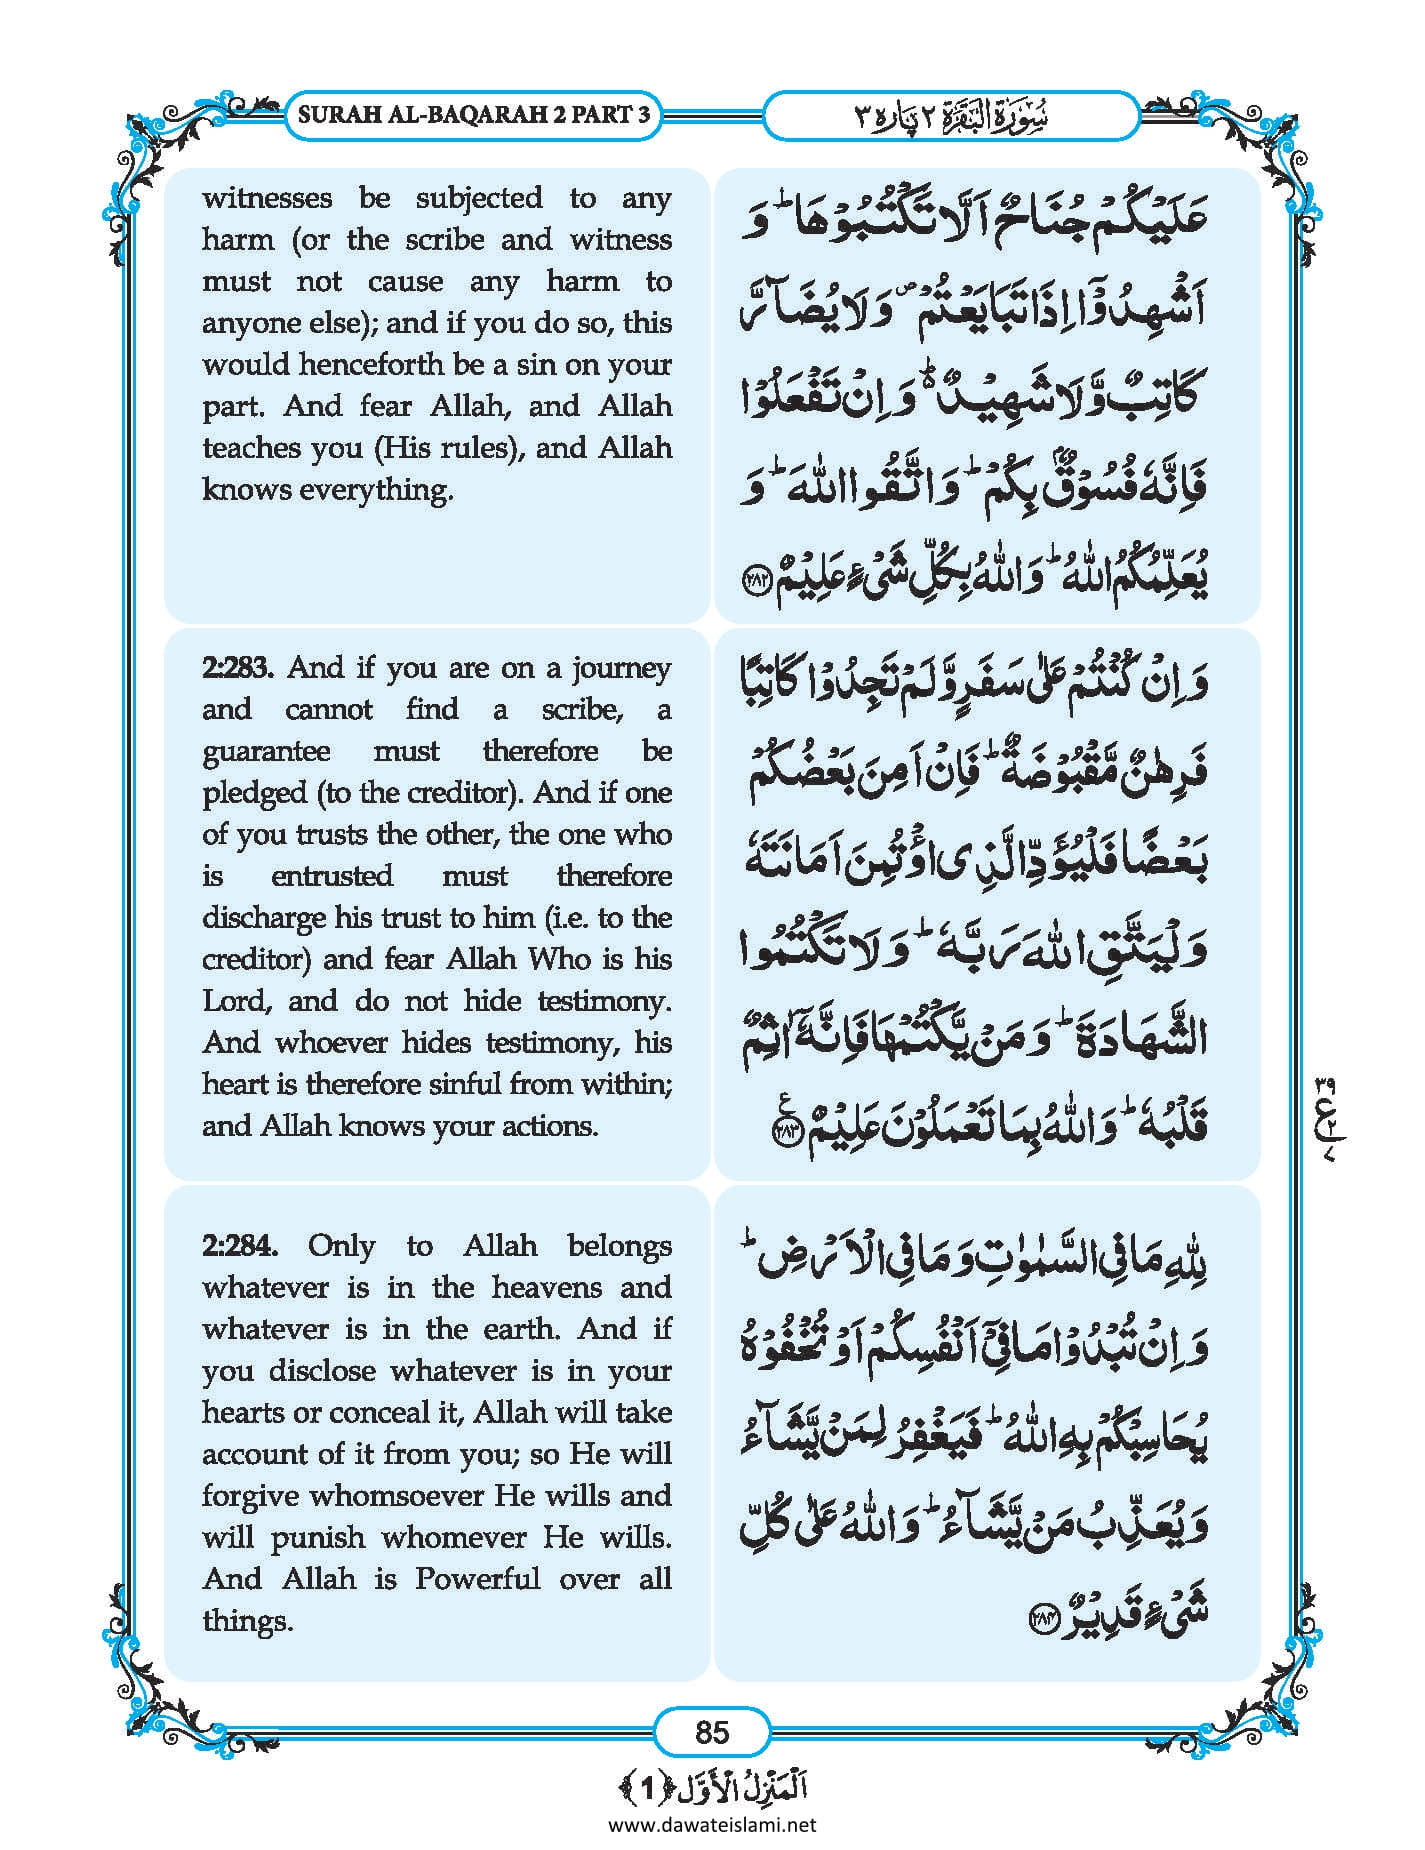 SURAH AL-BAQARAH 2 PART 3
سُوْرَۃُ الْبَقَرَۃِ ۲ پارہ ۳
witnesses be subjected to any
harm (or the scribe and witness
must not cause any harm to
anyone else); and if you do so, this
would henceforth be a sin on your
part. And fear Allah, and Allah
teaches you (His rules), and Allah
knows everything.
عَلَیْكُمْ جُنَاحٌ اَلَّا تَكْتُبُوْهَاؕ وَ
اَشْهِدُوْۤا اِذَا تَبَایَعْتُمْ۪ وَ لَا یُضَآرَّ
كَاتِبٌ وَّ لَا شَهِیْدٌ۬ؕ وَ اِنْ تَفْعَلُوْا
فَاِنَّهٗ فُسُوْقٌۢ بِكُمْؕ وَ اتَّقُوا اللّٰهَؕ وَ
یُعَلِّمُكُمُ اللّٰهُؕ وَ اللّٰهُ بِكُلِّ شَیْءٍ عَلِیْمٌ ﴿۲۸۲﴾
2:283. And if you are on a journey
and cannot find a scribe, a
guarantee must therefore be
pledged (to the creditor). And if one
of you trusts the other, the one who
is entrusted must therefore
discharge his trust to him (i.e. to the
creditor) and fear Allah Who is his
Lord, and do not hide testimony.
And whoever hides testimony, his
heart is therefore sinful from within;
and Allah knows your actions.
وَ اِنْ كُنْتُمْ عَلٰى سَفَرٍ وَّ لَمْ تَجِدُوْا كَاتِبًا
فَرِهٰنٌ مَّقْبُوْضَةٌؕ فَاِنْ اَمِنَ بَعْضُكُمْ
بَعْضًا فَلْیُؤَدِّ الَّذِی اؤْتُمِنَ اَمَانَتَهٗ
وَ لْیَتَّقِ اللّٰهَ رَبَّهٗؕ وَ لَا تَكْتُمُوا
الشَّهَادَةَؕ وَ مَنْ یَّكْتُمْهَا فَاِنَّهٗۤ اٰثِمٌ
قَلْبُهٗؕ وَ اللّٰهُ بِمَا تَعْمَلُوْنَ عَلِیْمٌ ﴿۲۸۳﴾ ع
۳۹
ع
۲
۷
2:284. Only to Allah belongs
whatever is in the heavens and
whatever is in the earth. And if
you disclose whatever is in your
hearts or conceal it, Allah will take
account of it from you; so He will
forgive whomsoever He wills and
will punish whomever He wills.
And Allah is Powerful over all
things.
لِلّٰهِ مَا فِی السَّمٰوٰتِ وَ مَا فِی الْاَرْضِؕ
وَ اِنْ تُبْدُوْا مَا فِیْۤ اَنْفُسِكُمْ اَوْ تُخْفُوْهُ
یُحَاسِبْكُمْ بِهِ اللّٰهُؕ فَیَغْفِرُ لِمَنْ یَّشَآءُ
وَ یُعَذِّبُ مَنْ یَّشَآءُؕ وَ اللّٰهُ عَلٰى كُلِّ
شَیْءٍ قَدِیْرٌ ﴿۲۸۴﴾
85
اَلْمَنْزِلُ الْاَوَّل ﴿1﴾
www.dawateislami.net